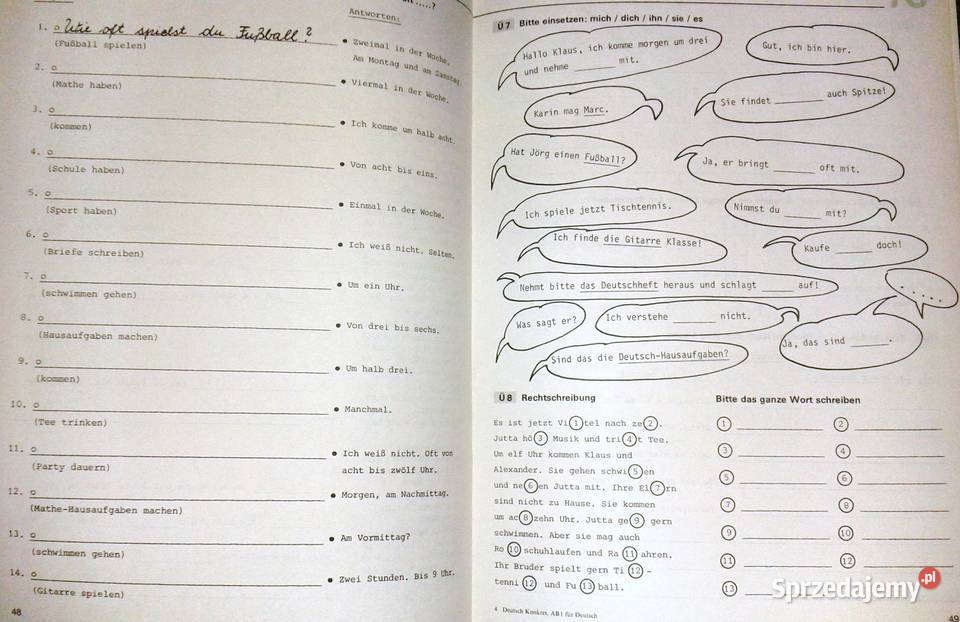 .....?
Antworten:
1. o Wie oft spielst du Fußball?
(Fußball spielen)
• Zweimal in der Woche.
Am Montag und am Samstag.
2. o
(Mathe haben)
• Viermal in der Woche.
3. o
(kommen)
• Ich komme um halb acht.
4. o
(Schule haben)
• Von acht bis eins.
5. o
(Sport haben)
• Einmal in der Woche.
6. o
(Briefe schreiben)
• Ich weiß nicht. Selten.
7. o
(schwimmen gehen)
• Um ein Uhr.
8. o
(Hausaufgaben machen)
• Von drei bis sechs.
9. o
(kommen)
• Um halb drei.
10. o
(Tee trinken)
• Manchmal.
11. o
(Party dauern)
• Ich weiß nicht. Oft von
acht bis zwölf Uhr.
12. o
(Mathe-Hausaufgaben machen)
• Morgen, am Nachmittag.
13. o
(schwimmen gehen)
• Am Vormittag?
14. o
(Gitarre spielen)
• Zwei Stunden. Bis 9 Uhr.
48
Ü7 Bitte einsetzen: mich / dich / ihn / sie / es
Hallo Klaus, ich komme morgen um drei
und nehme ______ mit.
Gut, ich bin hier.
Karin mag Marc.
Sie findet ______ auch Spitze!
Hat Jörg einen Fußball?
Ja, er bringt ______ oft mit.
Ich spiele jetzt Tischtennis.
Nimmst du ______ mit?
Ich finde die Gitarre Klasse!
Kaufe ______ doch!
Nehmt bitte das Deutschheft heraus und schlagt ______ auf!
.....
Was sagt er?
Ich verstehe ______ nicht.
Ja, das sind ______.
Sind das die Deutsch-Hausaufgaben?
Ü8 Rechtschreibung
Es ist jetzt Vi(1)tel nach ze(2).
Jutta hö(3) Musik und tri(4)t Tee.
Um elf Uhr kommen Klaus und
Alexander. Sie gehen schwi(5)en
und ne(6)en Jutta mit. Ihre El(7)rn
sind nicht zu Hause. Sie kommen
um ac(8)zehn Uhr. Jutta ge(9) gern
schwimmen. Aber sie mag auch
Ro(10)schuhlaufen und Ra(11)ahren.
Ihr Bruder spielt gern Ti(12)-
tenni(12) und Fu(13)ball.
Bitte das ganze Wort schreiben
(1) ______ (2) ______
(3) ______ (4) ______
(5) ______ (6) ______
(7) ______ (8) ______
(9) ______ (10) ______
(11) ______ (12) ______
(13) ______
4 Deutsch Konkret, AB1 für Deutsch
49
Sprzedajemy.pl